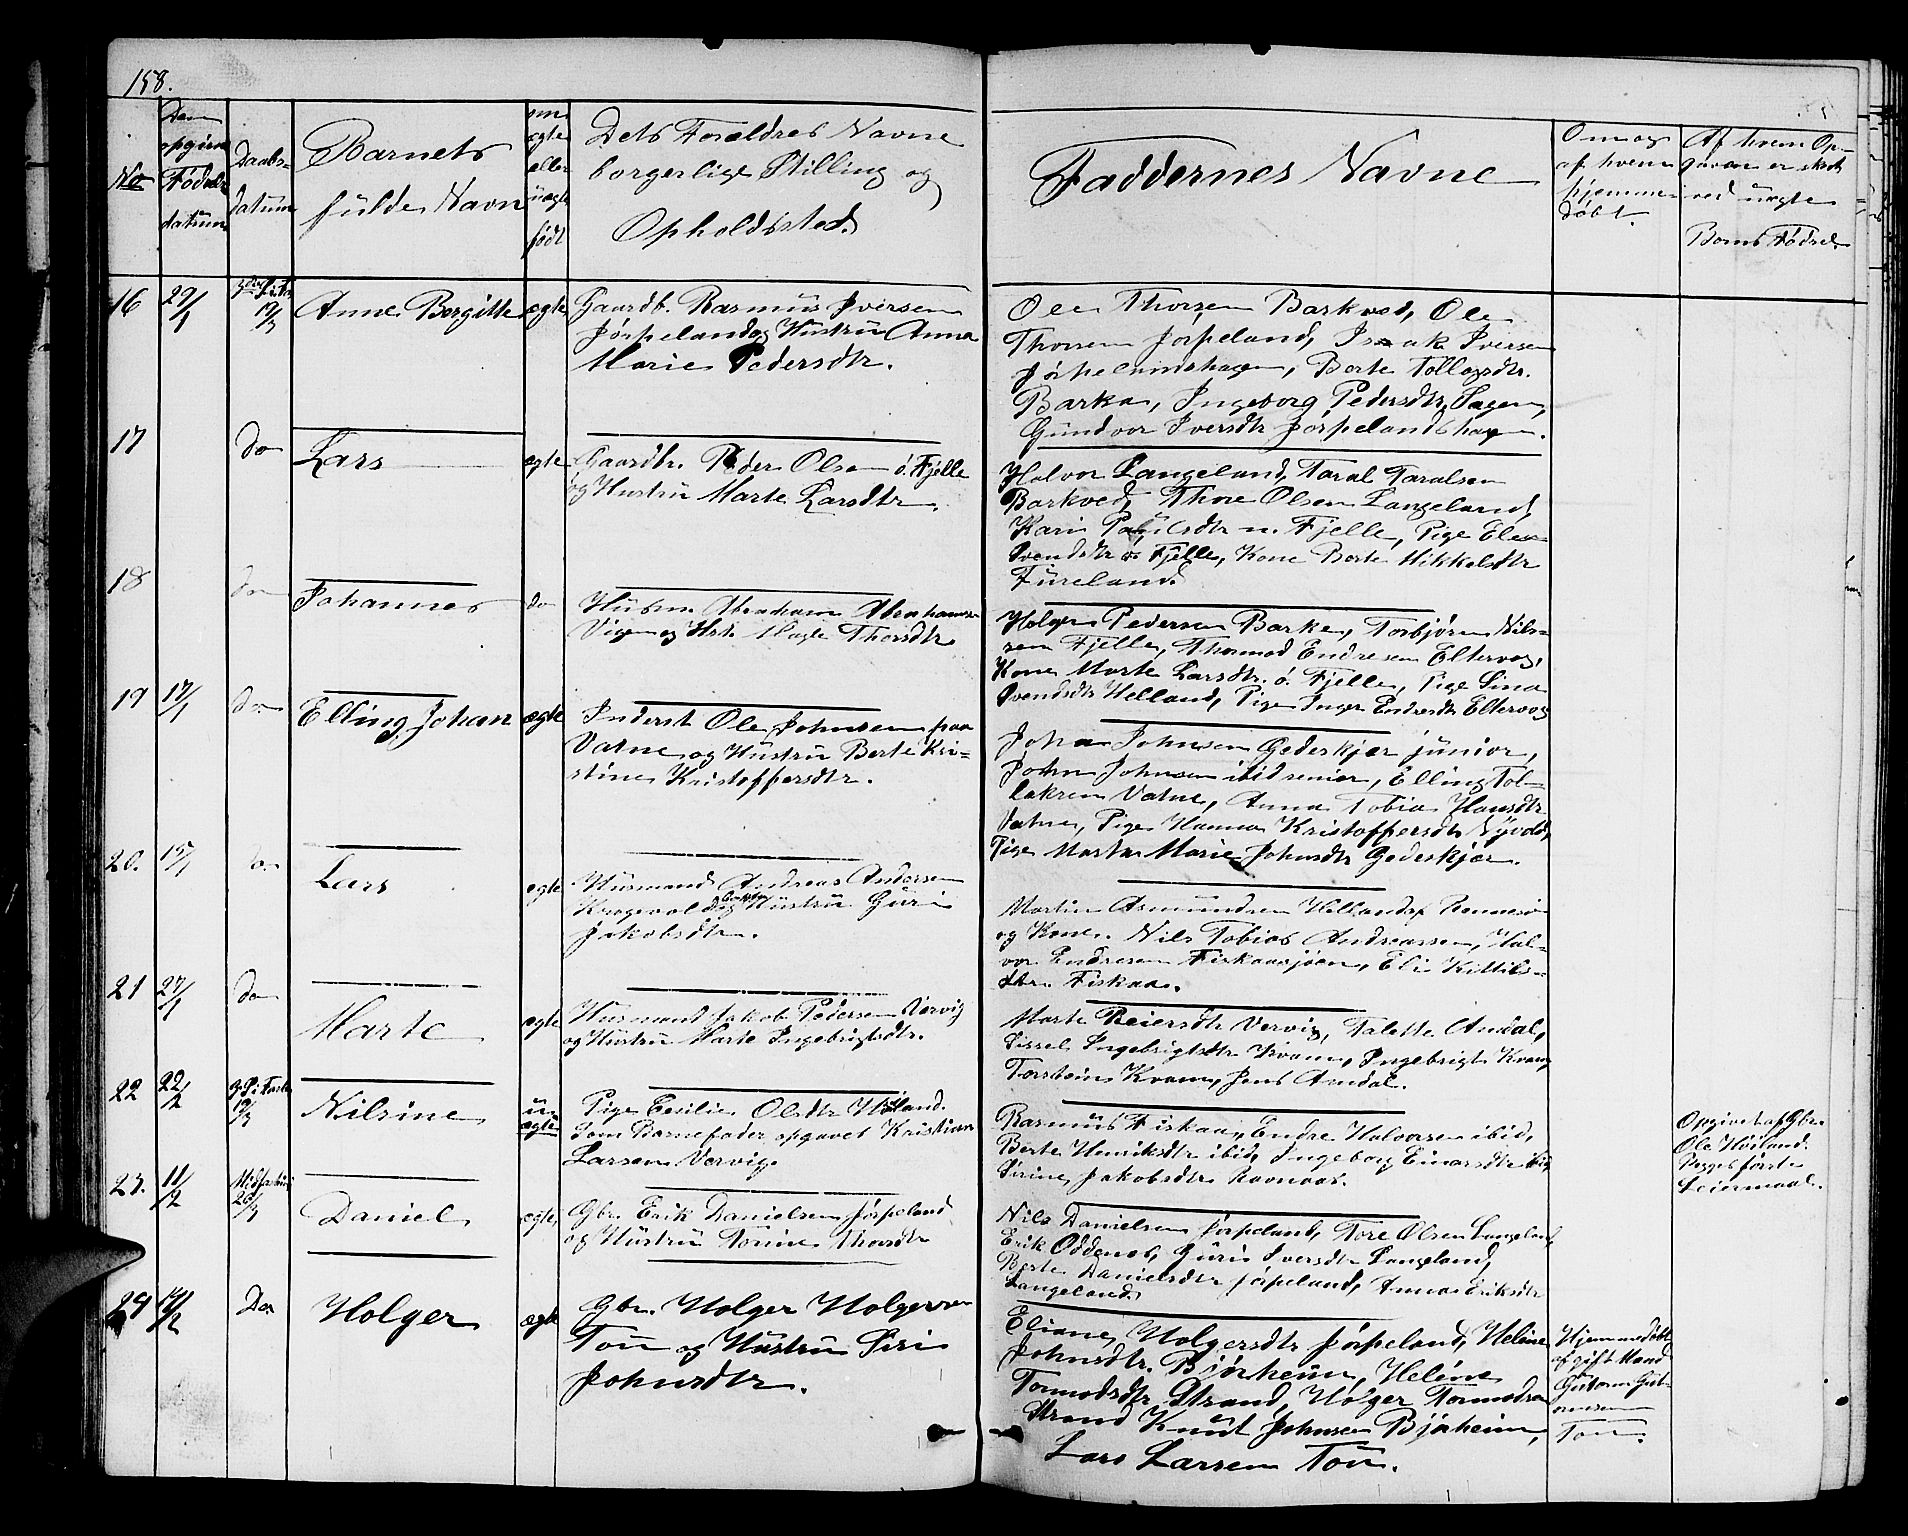 158.
No
Den opgivne Fødselsdatum
Daabsdatum
Barnets fulde Navn
om ægte eller uægte født
Dets Forældres Navne
borgerlige Stilling og
Opholdssted.
Faddernes Navne
Om og af hvem hjemmedøbt.
Af hvem Opgaven er skeet ved uægte Barns Fødsel.
16 29/1 19/3 Anne Bergitte ægte
Gaardb. Rasmus Iversen
Jørpeland og Hustru Anna
Marie Pedersdtr.
Ole Thorsen Barkved, Ole
Thorsen Jørpeland, Isak Iversen
Jørpelandshagen, Berte Tollagsdtr.
Barka, Ingeborg Pedersdtr Hagen,
Gundvor Iversdtr Jørpelandshagen.
17 do Lars ægte
Gaardbr. Peder Olsen ø. Fjelle
og Hustru Marte Larsdtr.
Halvor Langeland, Taral Taralsen
Barkved, Thore Olsen Langeland,
Kari Poulsdtr n. Fjelle, Pige Elen
Svendsdtr ø Fjelle, Kone Berte Mikkelsdtr
Fureland.
18 do Johannes do
Husm. Abraham Abrahamsen
Vigen og Hst. Magle Thorsdtr
Holger Pedersen Barke, Torbjørn Nils-
sen Fjelle, Thormod Endresen Eltervog,
Kone Marte Larsdtr. ø. Fjelle, Pige Sina
Svendsdtr Helland, Pige Inger Endresdtr Eltervog
19 17/1 do Elling Johan ægte
Inderst Ole Johnsen paa
Vatne og Hustru Berte Kri-
stine Kristoffersdtr.
John Johnsen Gedeskjær junior,
John Johnsen ibid senior, Elling Tol-
laksen Vatne, Anna Tobia Hansdtr
Vatne, Pige Hanna Kristoffersdtr Nyvold,
Pige Marta Marie Johnsdtr Gedeskjær.
20. 15/1 do Lars ægte
Husmand Andreas Andersen
Kragevold og Hustru Guri
Jakobsdtr.
Martin Asmundsen Hellandsø Rennesø
og Kone. Nils Tobias Andreassen, Hal-
vor Endresen Fiskaasjøen, Eli Kittils-
dtr Fiskaa.
21 27/1 do Marte ægte
Husmand Jakob Pedersen Vervig
og Hustru Marte Ingebrigtsdtr.
Marte Reiersdtr Vervig, Talette Amdal,
Sissel Ingebrigtsdtr Kvam, Ingebrigt Kvam,
Torstein Kvam, Jens Amdal.
22 22/2 3 S. i Faste 19/3 Nilsine uægte
Pige Cecilie Olsdtr Høiland.
Som Barnefader opgavet Kristian
Larsen Vervig.
Rasmus Fiskaa, Endre Halvorsen ibid,
Berte Henriksdtr ibid, Ingeborg Einarsdtr ibid,
Sirine Jakobsdtr Ravnaas.
Opgivet af Gbr.
Ole Høiland.
Begges første
Leiermaal.
23. 11/2 Midfaste 26/3 Daniel ægte
Gbr. Erik Danielsen Jørpeland
og Hustru Tomine Thorsdtr
Nils Danielsen Jørpeland, Tore Olsen Langeland,
Erik Oddenes, Guri Iversdtr Langeland,
Berte Danielsdtr Jørpeland, Anna Eriksdtr
Langeland.
24 14/2 Do Holger ægte
Gbr. Holger Holgersen
Tou og Hustru Siri
Johnsdtr.
Eliane Holgersdtr Jørpeland, Heline
Johnsdtr. Bjørheim, Heline
Tormodsdtr Strand, Holger Tormodsen
Strand Knud Johnsen Bjørheim,
Lars Larsen Tou.
Hjemmedøbt
af gift Mand
Gutorm Gut-
ormsen
Tou.